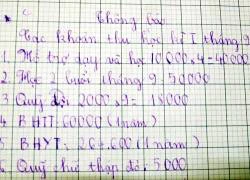 Thông báo
Các khoản thu học kì I tháng 9
1. Hỗ trợ dạy và học 10.000 x 4 = 40000
2. Học 2 buổi tháng 9. 50000
3. Quỹ đội 2000 x 9 = 18000
4 BHTT 60000 (1 năm)
5 BHYT: 264.600 (1 năm)
6 Quỹ chữ thập đỏ: 5000